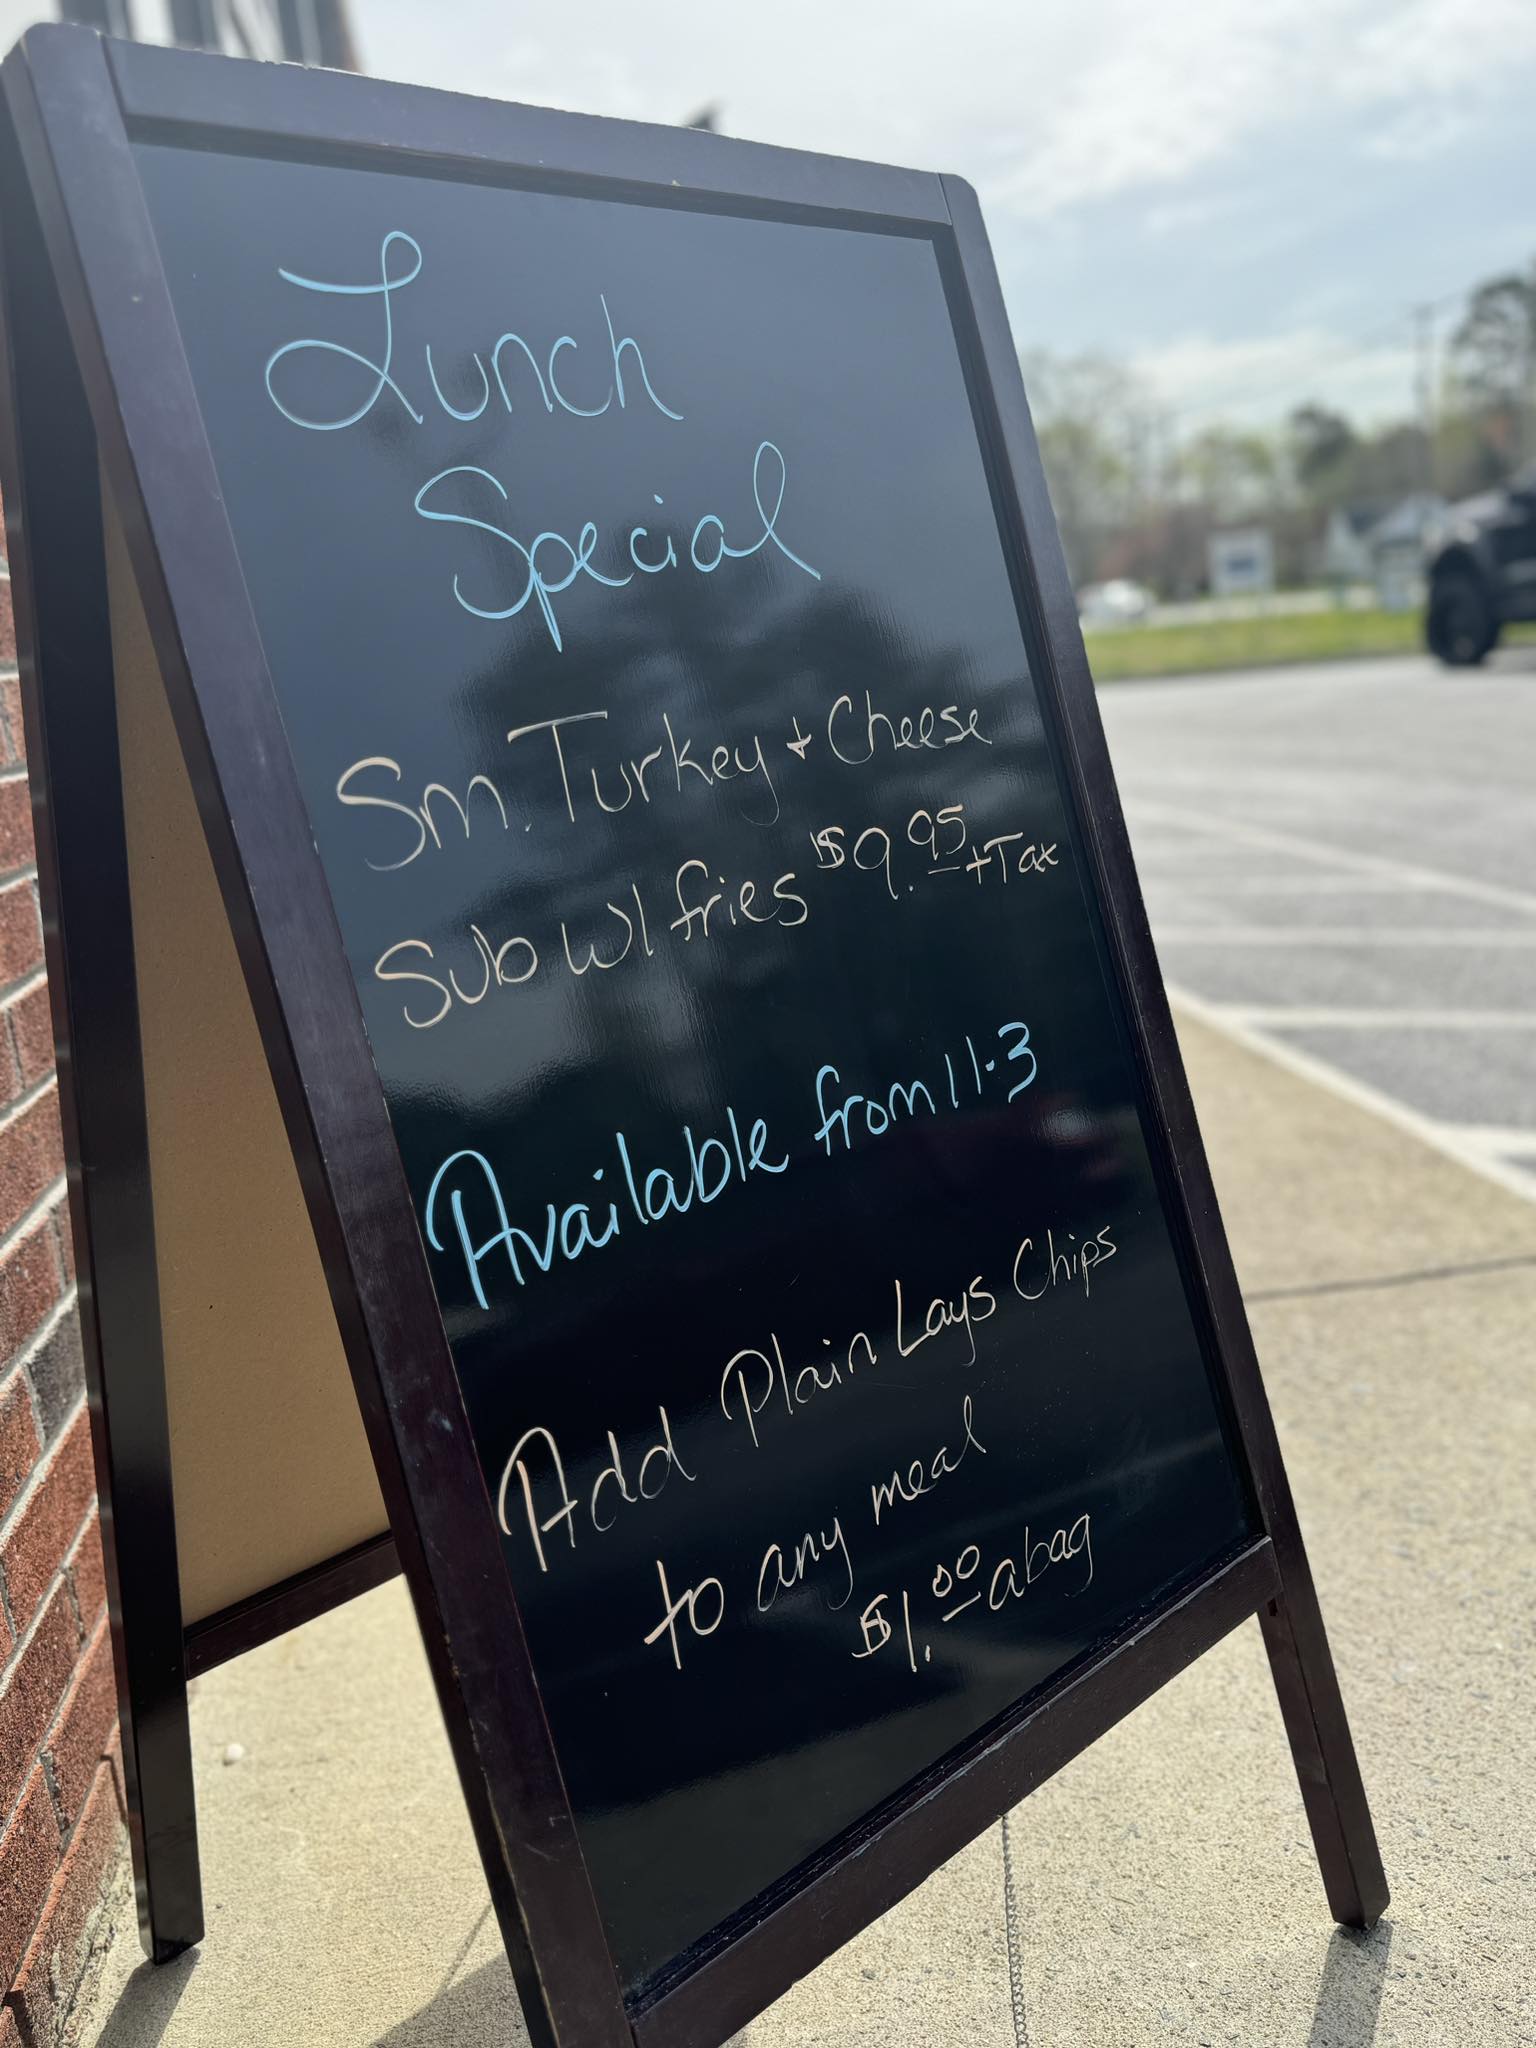 Lunch
Special
Sm. Turkey + Cheese
Sub w/ fries $9.95 + Tax
Available from 11-3
Add Plain Lays Chips
to any meal
$1.00 a bag